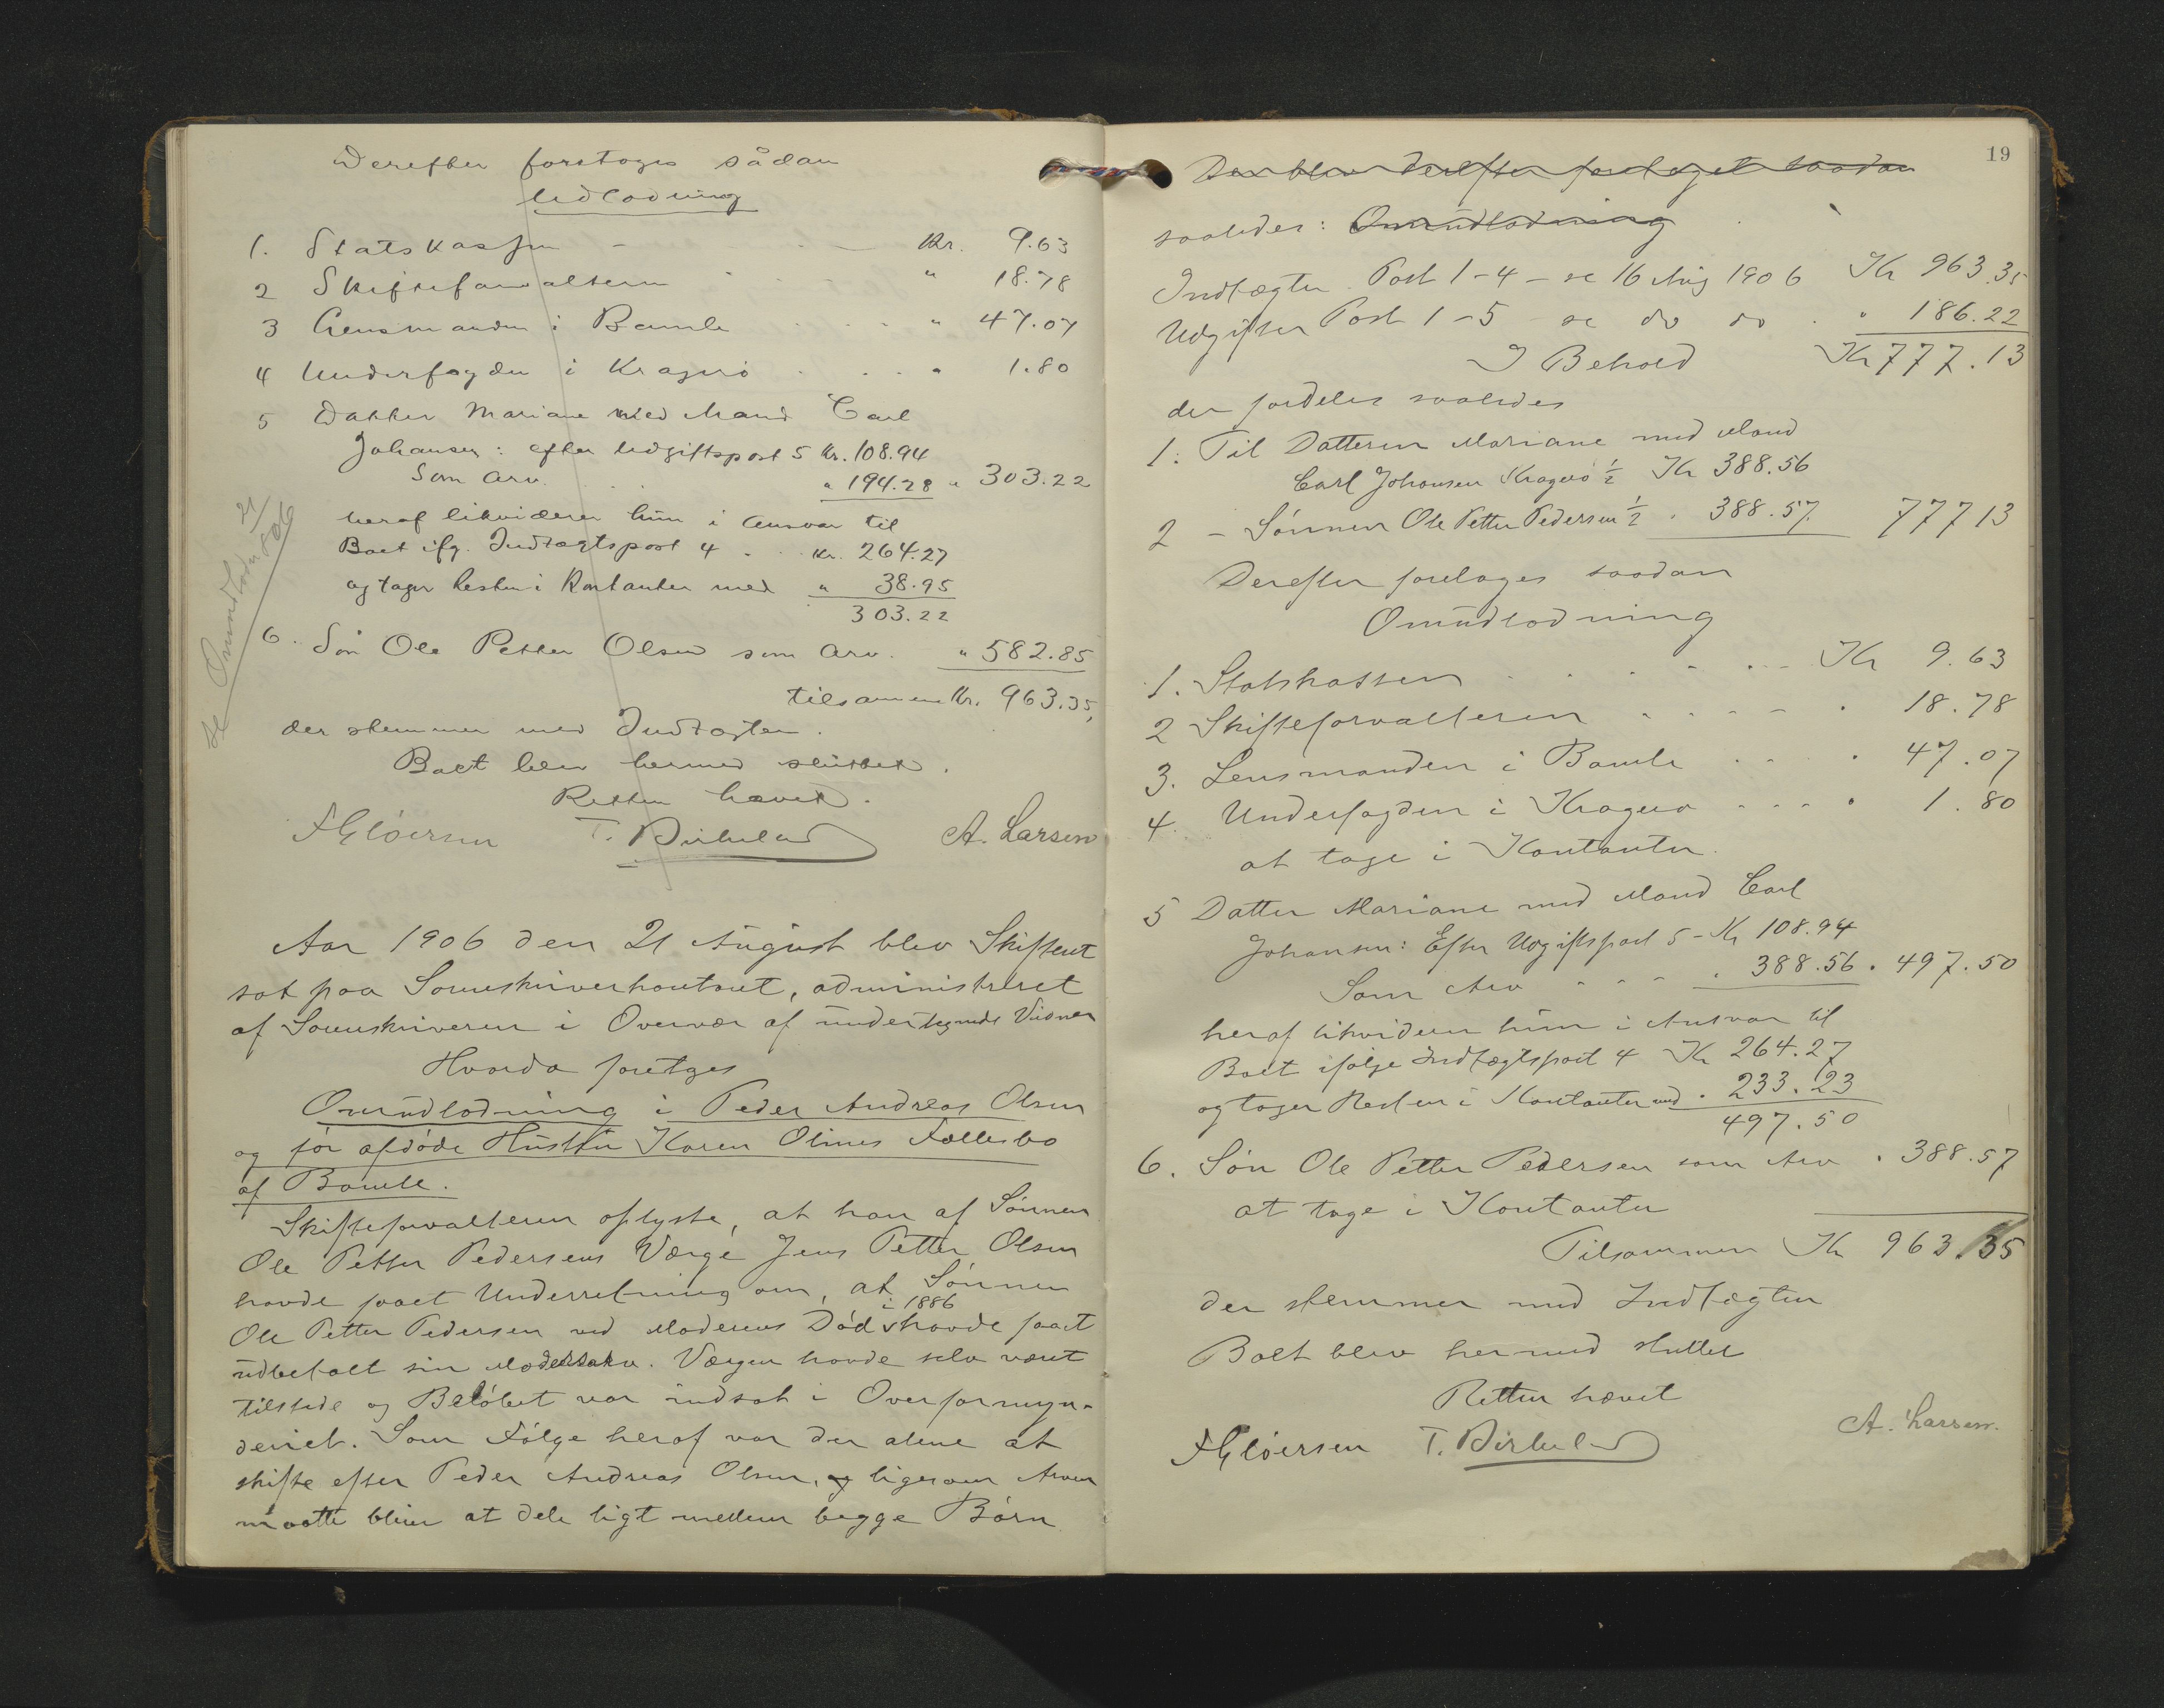 Derefter foretoges sådan
Udlodning
1. Statskassen - - Kr. 9.63
2 Skifteforvalteren " 18.78
3 Lensmanden i Bamle " 47.07
4 Underfogden i Kragerø " 1.80
5 Datter Mariane med Mand Carl
Johansen: efter Udgiftspost 5 Kr. 108.94
Som Arv " 194.28 " 303.22
heraf likviderer hun i Ansvar til
Boet ifg. Indtægtspost 4 Kr. 264.27
og tager Resten i Kontanter med " 38.95
303.22
6. Søn Ole Petter Olsen som Arv. " 582.85
tilsammen Kr. 963.35,
der stemmer med Indtægten.
Boet blev hermed sluttet.
Retten hævet.
F Gløersen T. Birkeland A. Larsen
se Omudlodn 21/8 06
Aar 1906 den 21 August blev Skifteret
sat paa Sorenskriverkontoret, administreret
af Sorenskriveren i Overvær af undertegnede Vidner
Hvorda foretoges
Omudlodning i Peder Andreas Olsen
og før afdøde Hustru Karen Olines Fællesbo
af Bamle.
Skifteforvalteren oplyste, at han af Sønnen
Ole Petter Pedersens Værge Jens Petter Olsen
havde faaet Underretning om, at Sønnen
Ole Petter Pedersen ved Moderens Død i 1886 havde faaet
udbetalt sin Modersarv. Værgen havde selv været
tilstede og Beløbet var indsat i Overformyn-
deriet. Som Følge heraf var der alene at
skifte efter Peder Andreas Olsen, og ligesom Arven
maatte bliver at dele ligt mellem begge Børn
19
Der blev derefter foretaget saadan
saaledes: Omudlodning
Indtægter Post 1-4 - se 16 Aug 1906 Kr 963.35
Udgifter Post 1-5 se do do " 186.22
I Behold Kr 777.13
der fordeles saaledes
1. Til Datteren Mariane med Mand
Carl Johansen Kragerø ½ Kr 388.56
2 - Sønnen Ole Petter Pedersen ½ " 388.57 777 13
Derefter foretages saadan
Omudlodning
1. Statskassen Kr 9.63
2 Skifteforvalteren " 18.78
3. Lensmanden i Bamle " 47.07
4. Underfogden i Kragerø " 1.80
at tage i Kontanter.
5 Datter Mariane med Mand Carl
Johansen: Efter Udgiftspost 5 - Kr 108.94
Som Arv " 388.56 " 497.50
heraf likviderer hun i Ansvar til
Boet ifølge Indtægtspost 4 Kr 264.27
og tager Resten i Kontanter med " 233.23
497.50
6. Søn Ole Petter Pedersen som Arv " 388.57
at tage i Kontanter
Tilsammen Kr 963.35
der stemmer med Indtægten
Boet blev hermed sluttet
Retten hævet
F Gløersen T. Birkeland A. Larsen.